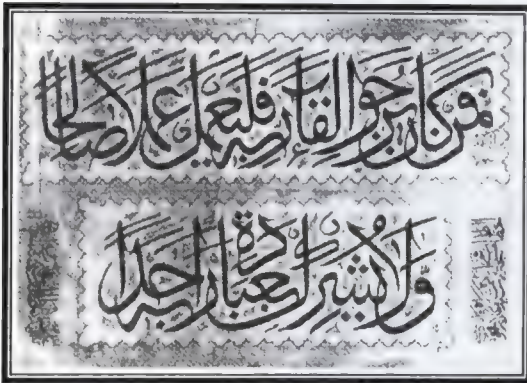 فَمَن كَانَ يَرْجُوا لِقَاءَ رَبِّهِ فَلْيَعْمَلْ عَمَلًا صَالِحًا
وَلَا يُشْرِكْ بِعِبَادَةِ رَبِّهِ أَحَدًا